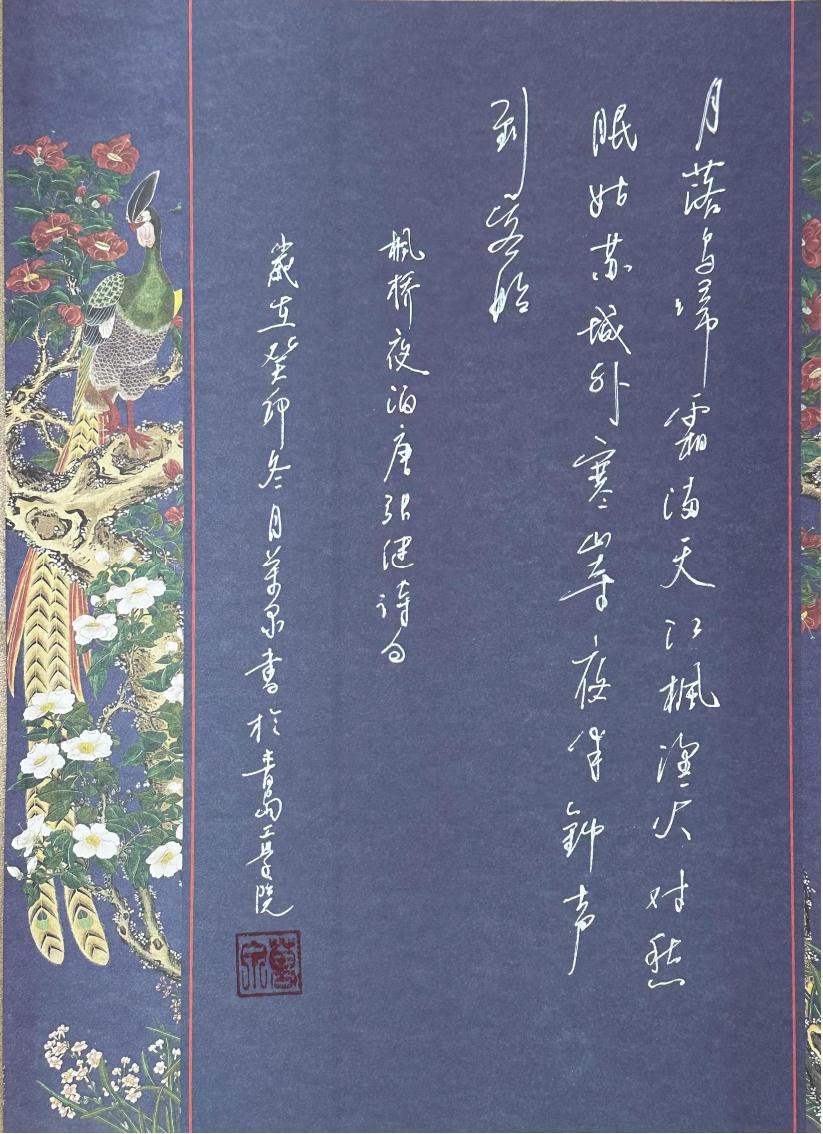 月落乌啼霜满天江枫渔火对愁
眠姑苏城外寒山寺夜半钟声
到客船
枫桥夜泊唐张继诗句
岁在癸卯冬月万泉书于青岛工学院
万泉